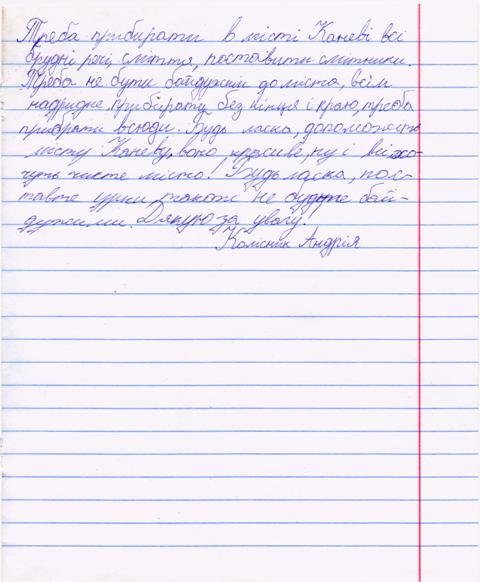 Треба прибирати в місті Каневі всі
брудні речі, сміття, поставити смітники.
Треба не бути байдужим до міста, всім
набридне прибирати без кінця і краю, треба
прибрати всюди. Будь ласка, допоможіть
місту Каневу, воно красиве, ну і всі хо-
чуть чисте місто! Будь ласка, пос-
тавте урни, також не будьте бай-
дужими. Дякую за увагу!
Колісник Андрія